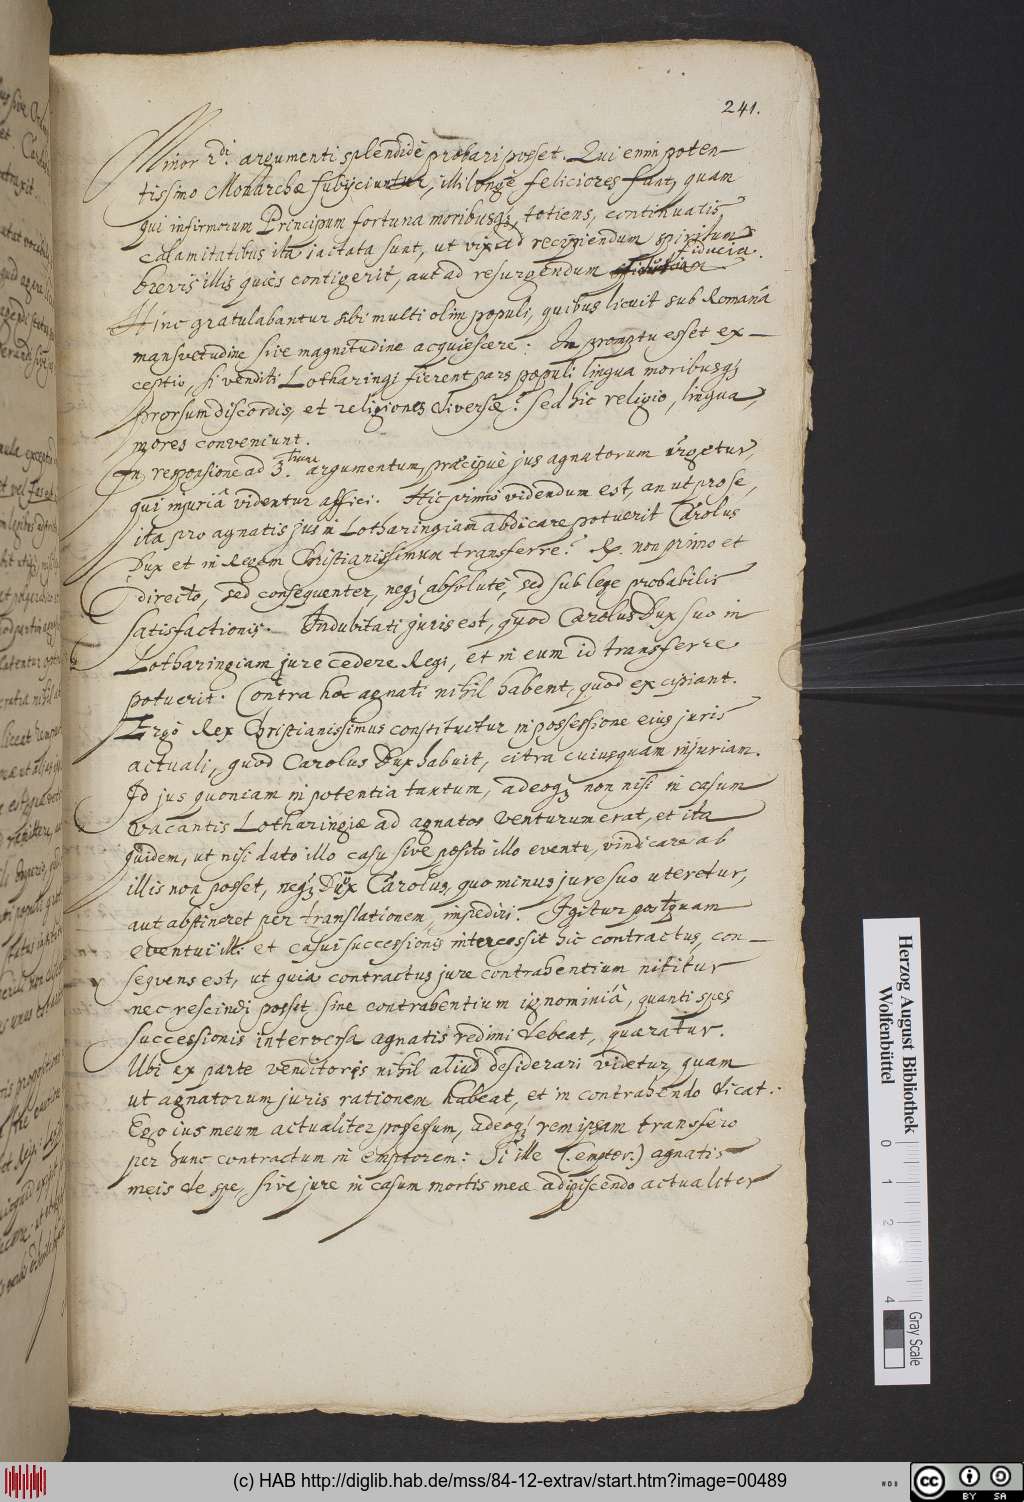 241.
Minor 2di. argumenti splendidè probari posset. Qui enim poten-
tissimo Monarchæ subijciuntur, illi longè feliciores sunt, quam
qui infirmorum Principum fortuna moribusq; totiens, continuatis
calamitatibus ita iactata sunt, ut vix ad recipiendum spiritum
brevis illis quies contigerit, aut ad resurgendum fiducia.
Hinc gratulabantur sibi multi olim populi, quibus licuit sub Romanâ
mansvetudine sive magnitudine acquiescere: In promptu esset ex-
ceptio, si venditi Lotharingi fierent pars populi lingua moribusq;
prorsum discordis, et religiones diversæ? sed hic religio, lingua,
mores conveniunt.
In responsione ad 3.tium argumentum, præcipuè jus agnatorum urgetur,
qui injuriâ videntur affici. Hic primò videndum est, an ut pro se,
ita pro agnatis jus in Lotharingiam abdicare potuerit Carolus
Dux et in Regem Christianissimum transferre? R. non primo et
directo, sed consequenter, neq; absolutè, sed sub lege probabilis
satisfactionis. Indubitati juris est, quod Carolus Dux suo in
Lotharingiam jure cedere Regi, et in eum id transferre
potuerit. Contra hoc agnati nihil habent, quod excipiant.
Ergò Rex Christianissimus constituitur in possessione eius juris
actuali, quod Carolus Dux habuit, citra cuiusquam injuriam.
Id jus quoniam in potentia tantum, adeoq; non nisi in casum
vacantis Lotharingiæ ad agnatos venturum erat, et ita
quidem, ut nisi dato illo casu sive posito illo eventu, vindicare ab
illis non posset, neq; Dux Carolus, quo minus jure suo uteretur,
aut abstineret per translationem, impediri. Igitur postquam
eventui illi et casui successionis intercessit hic contractus, con-
seqvens est, ut quia contractus jure contrahentium nititur
nec rescindi posset sine contrahentium ignominiâ, quanti spes
successionis interversa agnatis redimi debeat, quæratur.
Ubi ex parte venditoris nihil aliud desiderari videtur, quam
ut agnatorum juris rationem habeat, et in contrahendo dicat:
Ego ius meum actualiter possessum, adeoq; rem ipsam transfero
per hunc contractum in emptorem: Si ille (emptor.) agnatis
meis de spe, sive jure in casum mortis meæ adipiscendo actualiter
Herzog August Bibliothek
Wolfenbüttel
0 1 2 4
Gray Scale
(c) HAB http://diglib.hab.de/mss/84-12-extrav/start.htm?image=00489
CC BY SA